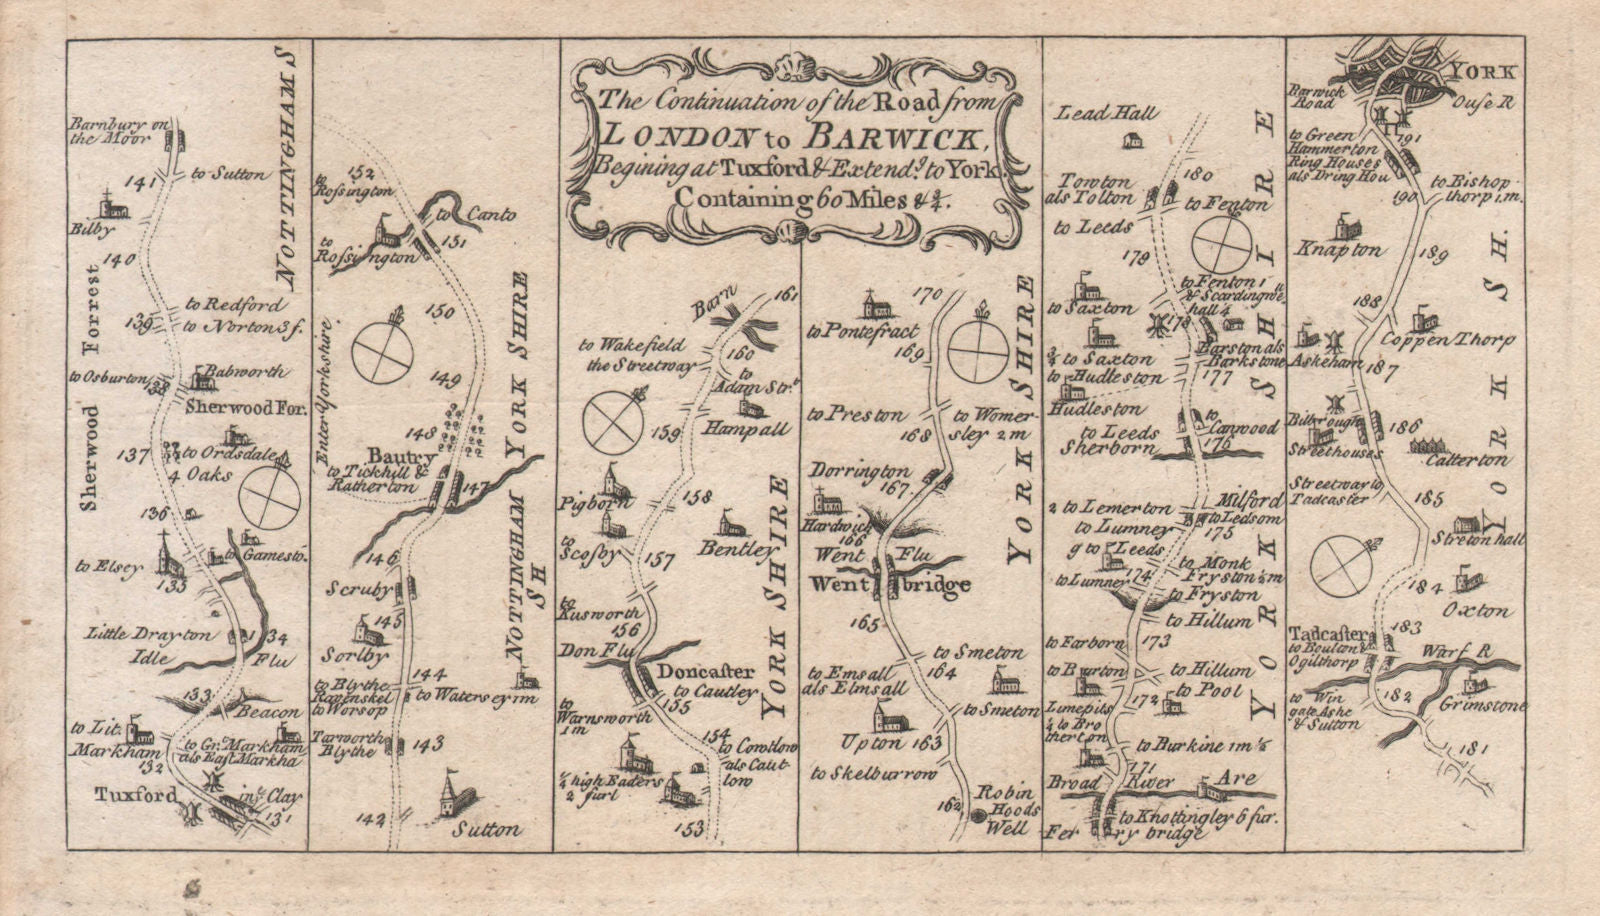 The Continuation of the Road from
LONDON to BARWICK,
Begining at Tuxford & Extend.g to York.
Containing 60 Miles & ¾.
NOTTINGHAMS
Sherwood Forrest
Barnbury on
the Moor
to Sutton
141
Bilby
140
to Redford
139
to Norton 3 f.
to Osburton
138
Babworth
Sherwood For.
137
to Ordsdale
4 Oaks
136
to Gamesto.
to Elsey
135
Little Drayton
134
Idle
Flu
133
Beacon
to Lit.
Markham
to Gr. Markham
als East Markha
132
Tuxford
in ye Clay
131
152
to
Rossington
to Canto
151
to
Rossington
150
Enter Yorkshire
YORK SHIRE
149
148
Bautry
to Tickhill &
Ratherton
147
NOTTINGHAM
SH
146
Scruby
145
Sorlby
144
to Blythe
Ravenskel
to Worsop
to Watersey 1 m
Tarworth
Blythe
143
142
Sutton
Barn
161
to Wakefield
the Streetway
160
to
Adam Str.t
159
Hampall
158
Pigborn
to
Scosby
Bentley
157
to
Kusworth
156
Don Flu
Doncaster
to Cautley
155
to
Warnsworth
1 m
154
to Cowlow
als Caut-
low
¼ high Baders
2 furl
153
YORK SHIRE
170
to Pontefract
169
to Preston
to Womer
sley 2 m
168
Dorrington
167
Hardwick
166
Went
Flu
Went bridge
165
to Smeton
164
to Emsall
als Elmsall
to Smeton
Upton
163
to Skelburrow
162
Robin
Hoods
Well
YORK SHIRE
Lead Hall
180
Towton
als Tolton
to Fenton
to Leeds
179
to Fenton 1
& Scardingwe
hall 4
to Saxton
178
¾ to Saxton
Barston als
Barkstone
to Hudleston
177
Hudleston
to
Cawood
to Leeds
Sherborn
176
2 to Lemerton
Milford
to Lumney
to Ledsom
175
9 to Leeds
to Monk
Fryston ½ m
174
to Lumney
to Fryston
to Hillum
to Farborn
173
to Burton
to Hillum
to Pool
172
Limepits
¼ to Bro
therton
to Burkine 1 m ½
171
Broad
River
Are
to Knottingley 6 fur.
Fer ry bridge
YORK SHIRE
YORK
Barwick
Road
Ouse R
191
to Green
Hammerton
Ring Houses
als Dring Hou
to Bishop
thorp 1, m.
190
Knapton
189
188
Coppen Thorp
Askeham
187
Bilbrough
186
Streethouses
Catterton
Streetway to
Tadcaster
185
Streton hall
184
Oxton
183
Tadcaster
to Boulton &
Ogilthorp
Warf R
182
to Win
gate Ashe
& Sutton
Grimstone
181
YORK SH.